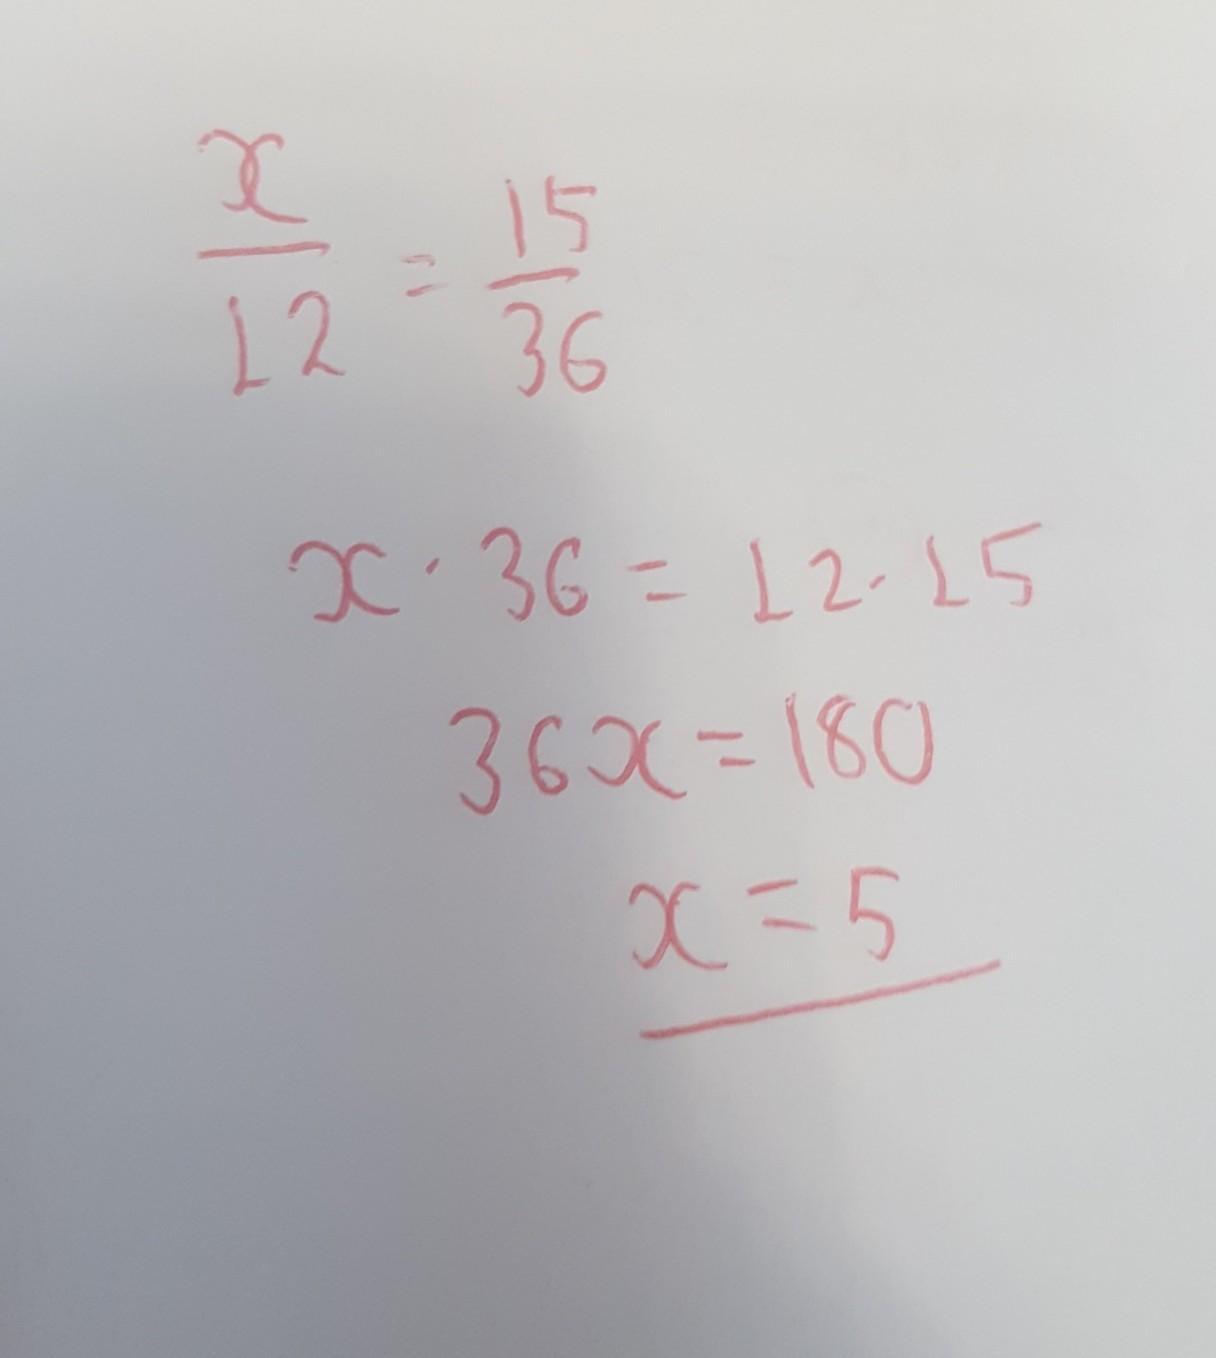 x/12 = 15/36
x · 36 = 12 · 15
36x = 180
x = 5